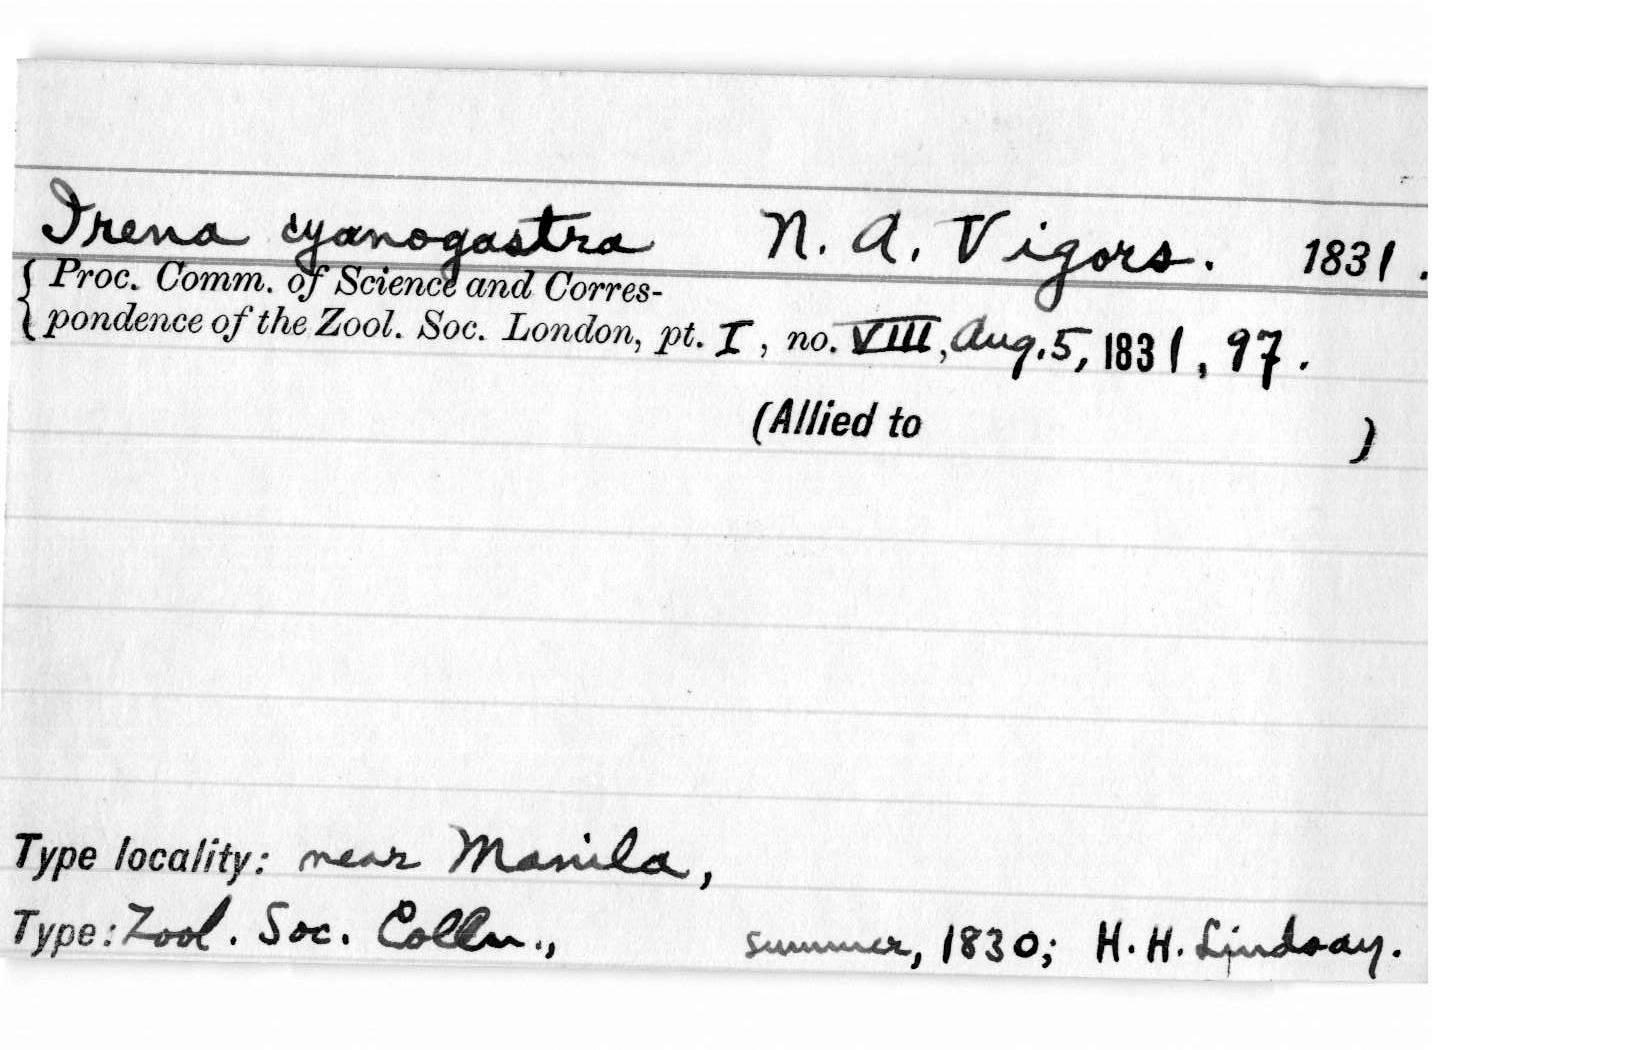 Irena cyanogastra N. A. Vigors. 1831.
Proc. Comm. of Science and Corres-
pondence of the Zool. Soc. London, pt. I, no. VIII, Aug. 5, 1831, 97.
(Allied to )
Type locality: near Manila,
Type: Zool. Soc. Colln., summer, 1830; H. H. Lindsay.